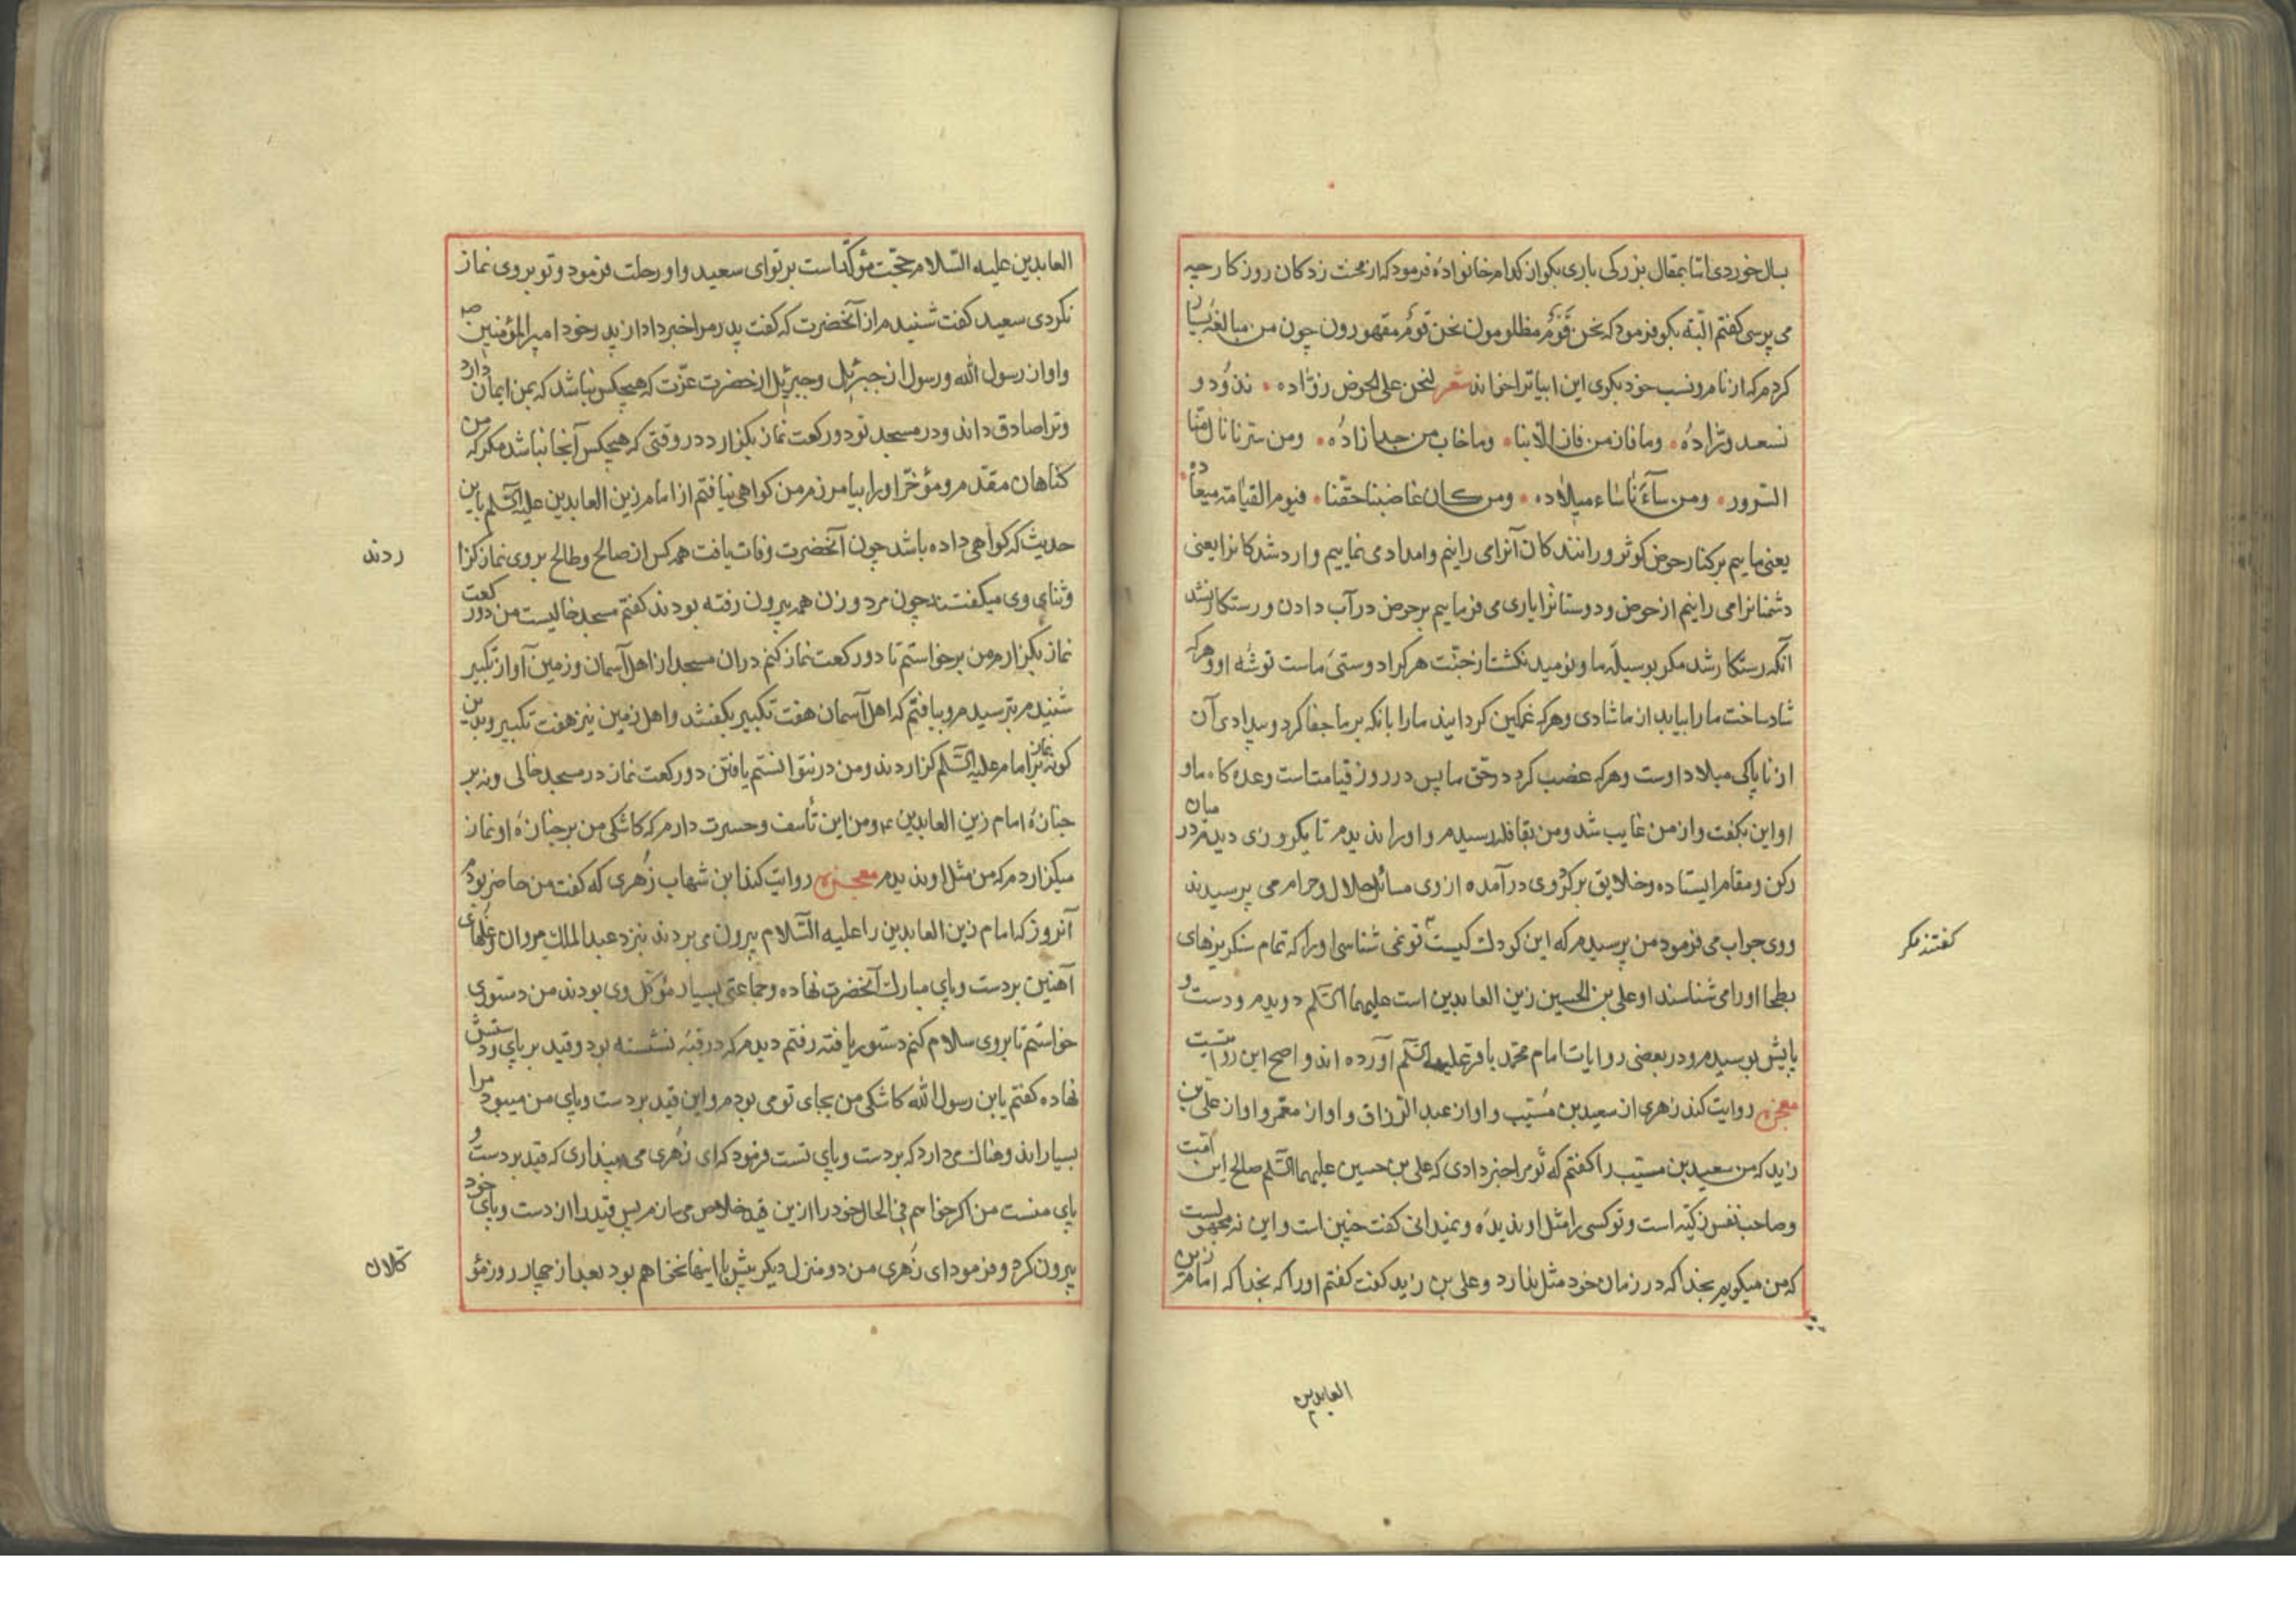 بسال خوردی اما بمقال بزرکی باری بکو از کدام خانواده فرمود که از محنت زدکان روزکار چه
می پرسی کفتم البته بکو فرمود که نحن قوم مظلومون نحن قوم مقهورون چون من مبالغه بسیار
کردم که از نام و نسب خود بکوی این ابیاترا خواند شعر لنحن علی الحوض زوّاده نذود و
نسعد ورّاده وما فاز من فاز الا بنا وما خاب من حبنا زاده ومن سرنا نال منا
السرور ومن سآءنا ساء میلاده ومن کان غاضبنا حقنا فیوم القیامة میعاده
یعنی ماییم بر کنار حوض کوثر و رانندکان آنرا می رانیم و امداد می نماییم وارد شدکانرا یعنی
دشمنانرا می رانیم از حوض و دوستانرا یاری می فرماییم بر حوض در آب دادن و رستکار نشد
آنکه رستکار شد مکر بوسیلهٔ ما و نومید نکشت از جنت هرکرا دوستی ماست توشه او و هرکه
شاد ساخت ما را بیابد از ما شادی و هرکه غمکین کردانید ما را بانکه بر ما جفا کرد و بیدادی آن
از ناپاکی میلاد اوست و هرکه غضب کرد در حق ما پس در روز قیامت است وعده کاه ما و
او این بکفت و از من غایب شد و من بقافله رسیدم و او را ندیدم تا یکروزی دیدم در میان
رکن و مقام ایستاده و خلایق بر کرد وی درآمده از وی مسائل حلال و حرام می پرسیدند
ووی جواب می فرمود من پرسیدم که این کودک کیست تو نمی شناسی او را که تمام سنکریزهای
کفتند مکر
بطحا او را می شناسند او علی بن الحسین زین العابدین است علیهما السّلم دویدم و دست و
پایش بوسیدم و در بعضی روایات امام محمد باقر علیه السّلم آورده اند و اصح این روایتست
معجزه روایت کند زهری از سعید بن مسیّب و او از عبد الرزاق و او از معمّر و او از علی بن
زید که من سعید بن مسیّب را کفتم که تو مرا خبر دادی که علی بن حسین علیهما السّلم صالح این امّت
و صاحب نفس زکیه است و تو کسی را مثل او ندیده و نمیدانی کفت چنین است و این نه مجهولیست
که من میکویم بخدا که در زمان خود مثل ندارد و علی بن زید کفت کفتم او را که بخدا که امام زین
العابدین
العابدین علیه السّلام حجّت مؤکّد است بر تو ای سعید و او رحلت فرمود و تو بر وی نماز
نکردی سعید کفت شنیدم از آنحضرت که کفت پدرم مرا خبر داد از پدر خود امیرالمؤمنین
و او از رسول الله و رسول از جبرئیل و جبرئیل از حضرت عزّت که هیچکس نباشد که بمن ایمان دارد
و ترا صادق داند و در مسجد تو دو رکعت نماز بکزارد در وقتی که هیچکس آنجا نباشد مکر که من
کناهان مقدّم و مؤخّر او را بیامرزم من کواهی نیافتم از امام زین العابدین علیه السّلم باین
حدیث که کواهی داده باشد چون آنحضرت وفات یافت همه کس از صالح و طالح بر وی نماز کزا
ردند
و ثنای وی میکفتند چون مرد و زن همه بیرون رفته بودند کفتم مسجد خالیست من دو رکعت
نماز بکزارم من برخواستم تا دو رکعت نماز کنم در ان مسجد از اهل آسمان و زمین آواز تکبیر
شنیدم بترسیدم و بیافتم که اهل آسمان هفت تکبیر بکفتند و اهل زمین نیز هفت تکبیر و بدین
کونه نماز بر امام علیه السّلم کزاردند و من درنتوانستم یافتن دو رکعت نماز در مسجد خالی و نه بر
جنازهٔ امام زین العابدین ع و من این تأسف و حسرت دارم که کاشکی من بر جنازهٔ او نماز
میکزاردم که من مثل او ندیدم معجزه روایت کند ابن شهاب زُهری که کفت من حاضر بودم
آنروز که امام زین العابدین را علیه السّلام بیرون می بردند بنزد عبد الملک مروان و غلهای
آهنین بر دست و پای مبارک آنحضرت نهاده و جماعتی بسیار مؤکّل وی بودند من دستوری
خواستم تا بر وی سلام کنم دستور یافته رفتم دیدم که در قبّه نشسته بود و قید بر پای و دستش
نهاده کفتم یابن رسول الله کاشکی من بجای تو می بودم و این قید بر دست و پای من میبود مرا
بسیار اند وهناک می دارد که بر دست و پای تست فرمود که ای زهری می پنداری که قید بر دست و
پای منست من اکر خواهم فی الحال خود را ازین قید خلاص می سازم پس قید را از دست و پای خود
بیرون کرد و فرمود ای زُهری من دو منزل دیکر بیش با اینها نخواهم بود بعد از چهار روز مؤ
کلان